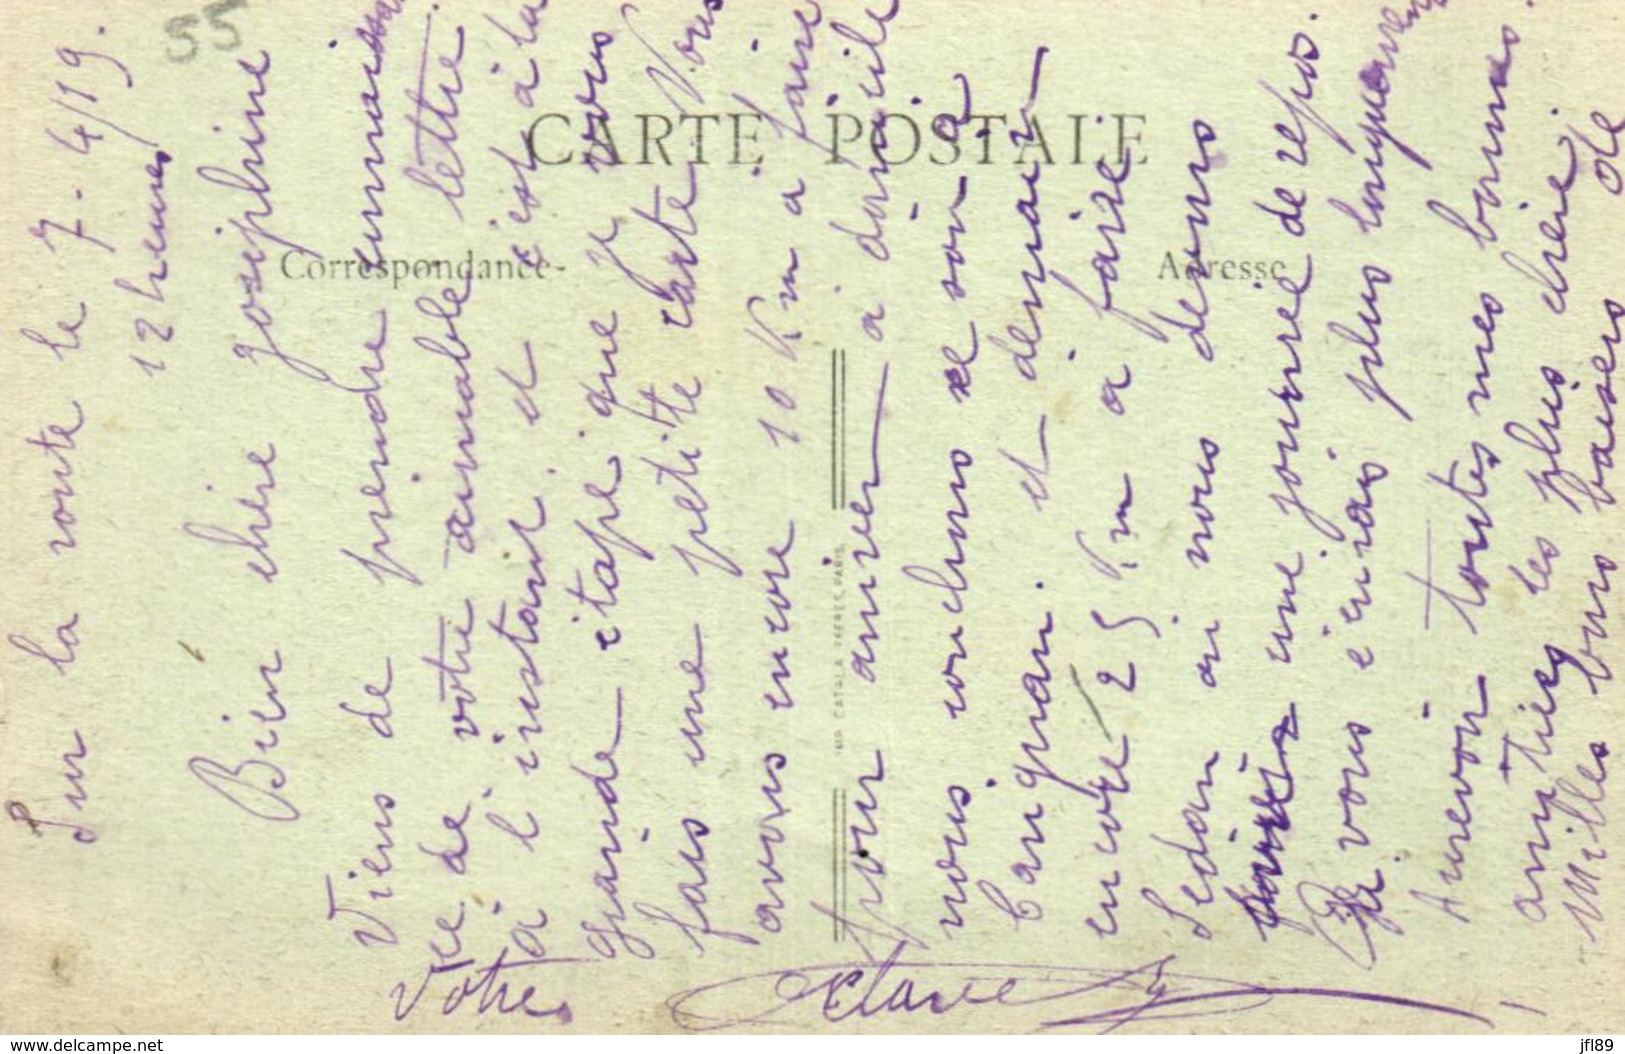 CARTE POSTALE
Correspondance
Adresse
IMP. CATALA FRERES PARIS
55
Sur la route le 7-4/19.
12 heures
Bien chère Joséphine
Viens de prendre connaissan
ce de votre aimable lettre
à l'instant. et c'est à la
grande étape que je vous
fais une petite carte Nous
avons encore 10 Km à faire
pour arriver à domicile
nous couchons ce soir a
et demain
encore 25 Km à faire.
Sedan ou nous devons
une journée de repos.
Je vous écrirais plus longuement
Aurevoir toutes mes bonnes
amitiés les plus chère.
Milles bons baisers de
Votre Octave
www.delcampe.net
jfl89